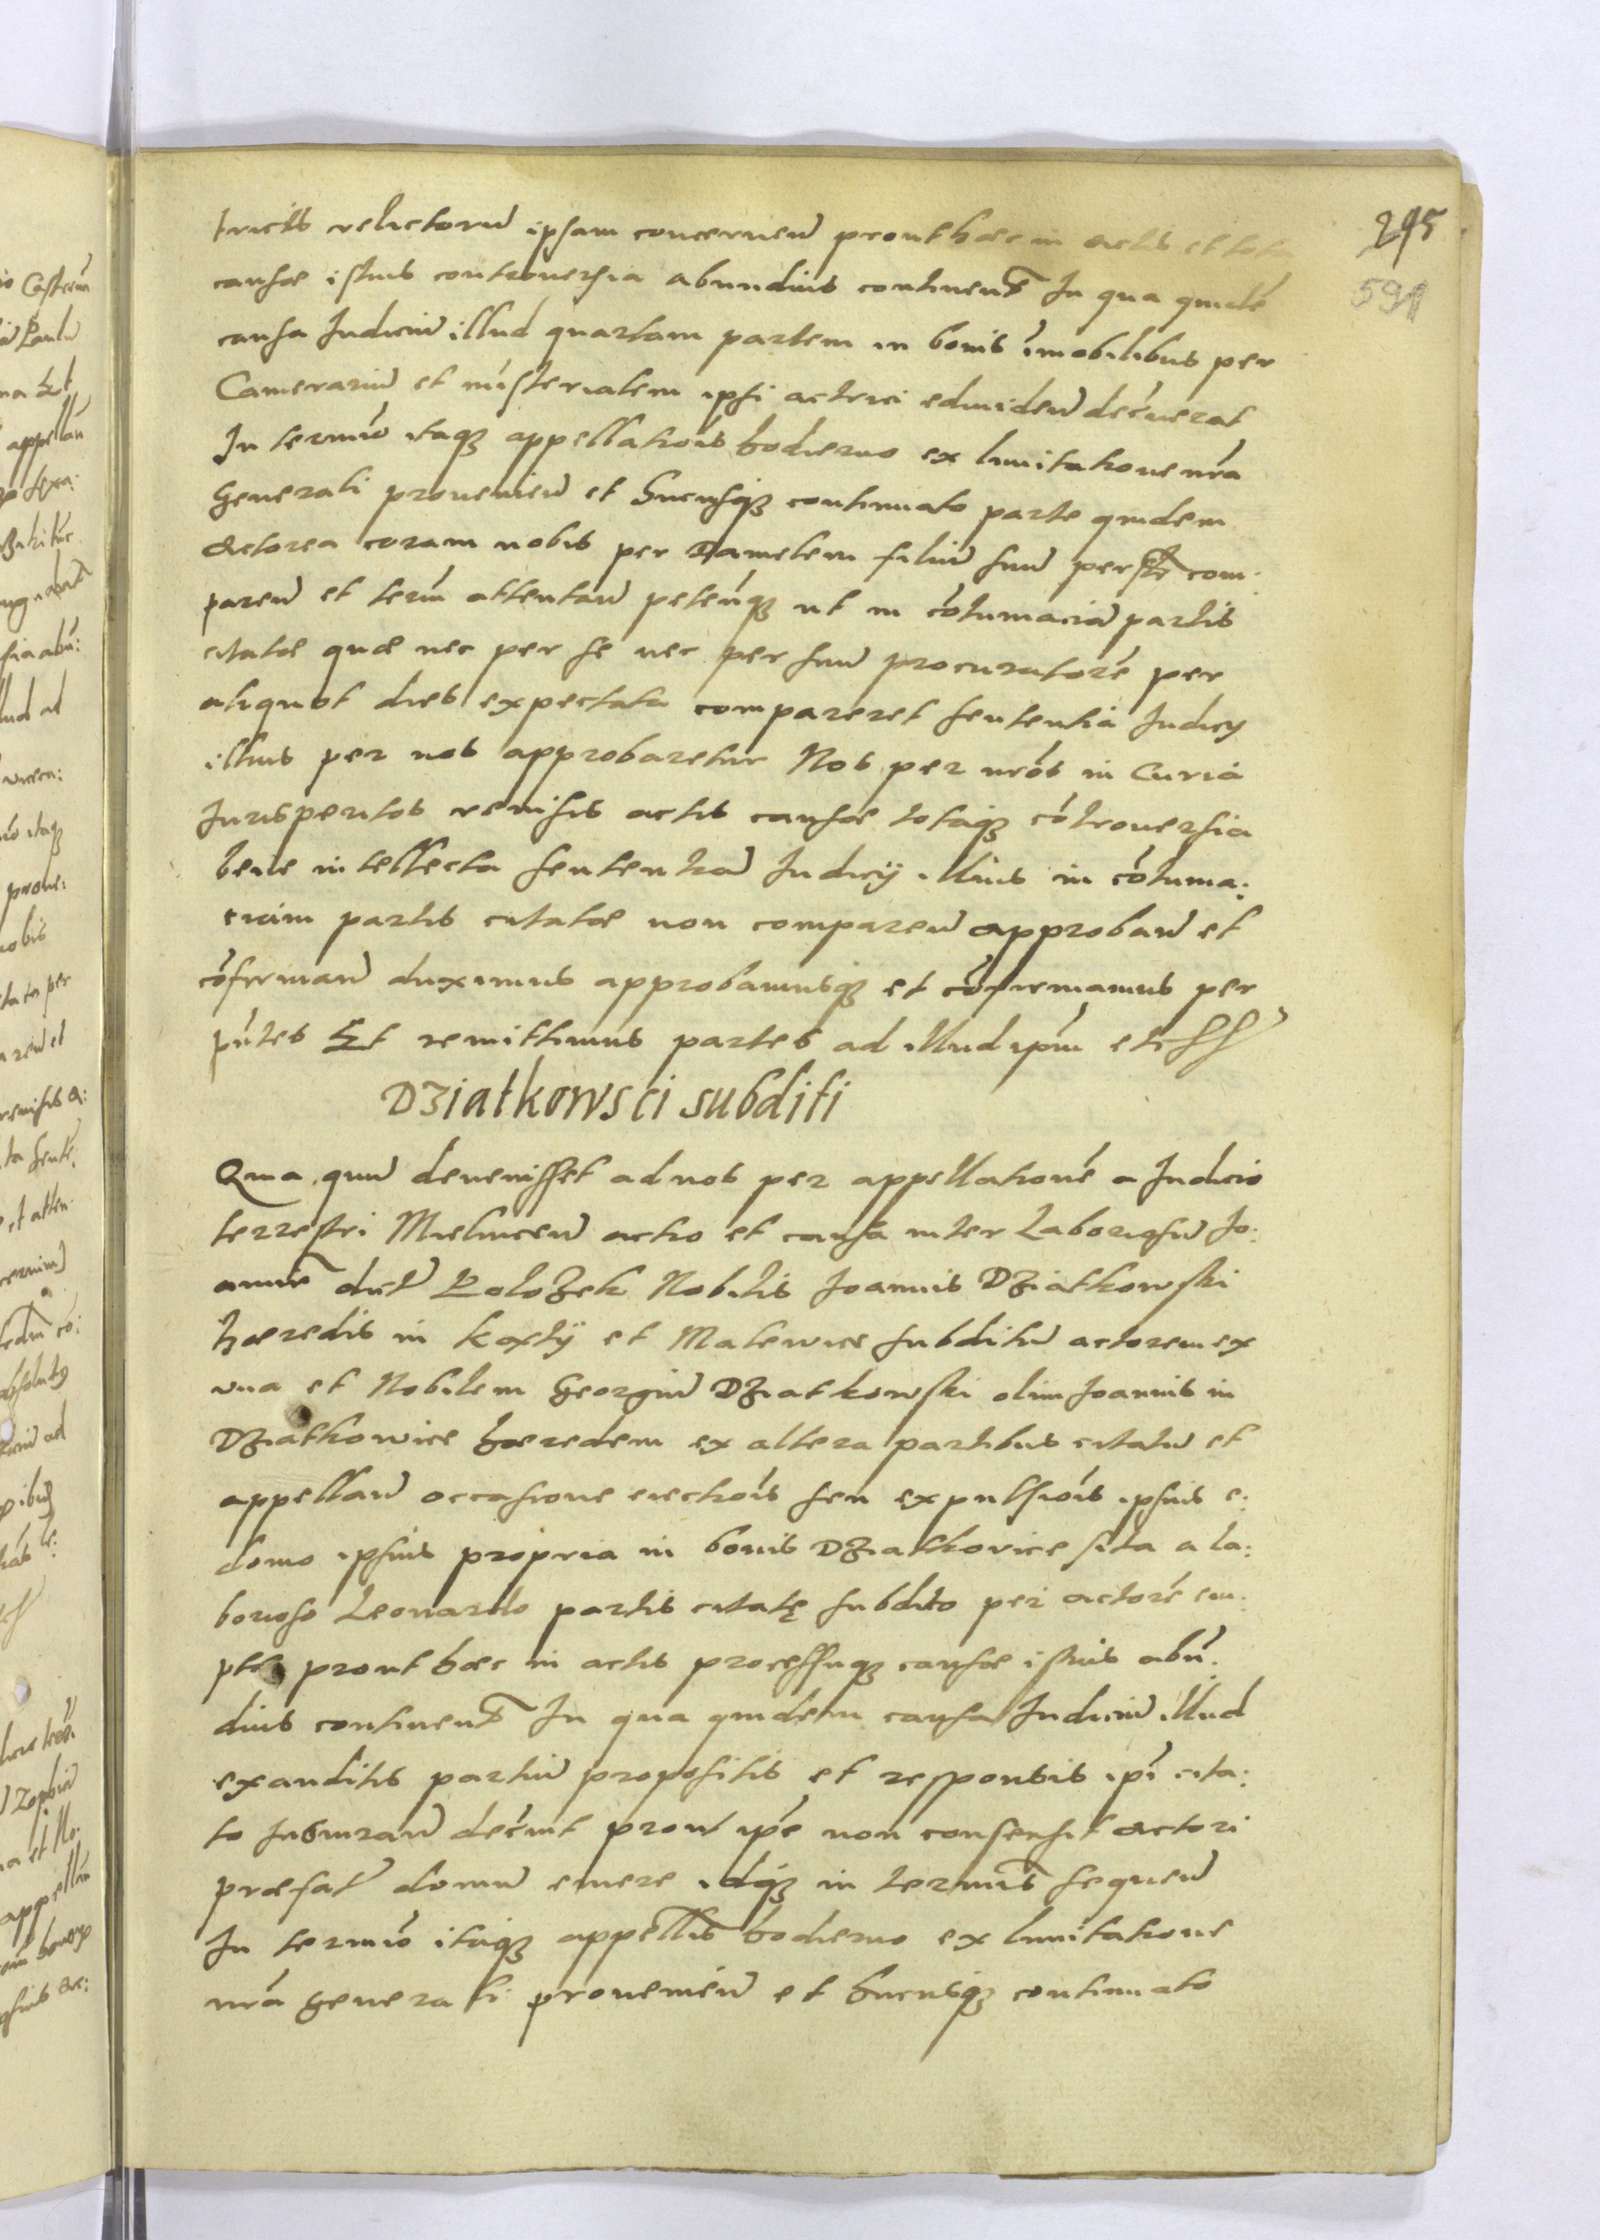 295
591
tricis relictorũ ipsam concernẽn prout hæc in actis et tota
causæ istius controversia abundius continentr̃ In qua quidẽ
causa Iudiciũ illud quartam partem in bonis ĩmobilibus per
Camerariũ et mĩsterialem ipsi actrici edividen̄ decr̃verat
In termĩo itaqʒ appellatiõis hodierno ex limitatione nr̃a
Generali provenien̄ et hucusqʒ continuato parte quidem
Actorea coram nobis per Danielem filiũ suũ com:
paren̄ et term̃ attentan̄ petẽnqʒ ut in cõtumaciã partis
citatæ quæ nec per se nec per suũ procuratorẽ per
aliquot dies expectata compareret sententia Iudicÿ
illius per nos approbaretur Nos per nr̃os in Curia
Iurisperitos revisis actis causæ totaqʒ cõtroversia
bene intellecta sententiã Iudicÿ illius in cõtuma:
ciam partis citatæ non comparen̄ approban̄ et
cõfirman̄ duximus approbamusqʒ et cõfirmamus per
pñtes Et remittimus partes ad illud ipm̃ etc
Dziatkowsci subditi
Quia quũ devenisset ad nos per appellationẽ a Iudicio
terrestri Mielnicen̄ actio et causa inter Laboriosũ Jo:
annẽ dict̃ Kolozek Nobilis Joannis Dziatkowski
hæredis in Kozły et Malewice subditũ actorem ex
una et Nobilem Georgiũ Dziatkowski olim Joannis in
Dziatkowice hæredem ex altera partibus citatũ et
appellan̄ occasione eiectiõis seu expulsiõis ipsius e:
domo ipsius propria in bonis Dziatkovice sita a la:
borioso Leonardo partis citatę subdito per actorẽ em:
pta prout hæc in actis processuqʒ causæ istius abũ:
dius continentr̃ In qua quidem causa Iudiciũ illud
exauditis partiũ propositis et responsis ipĩ cita:
to Iusiuran̄ decr̃vit prout ipẽ non consensit actori
præfat̃ domũ emere idqʒ in terminis sequen̄
In termĩo itaqʒ appellis hodierno ex limitatione
nr̃a generali provenien̄ et hucusqʒ continuato